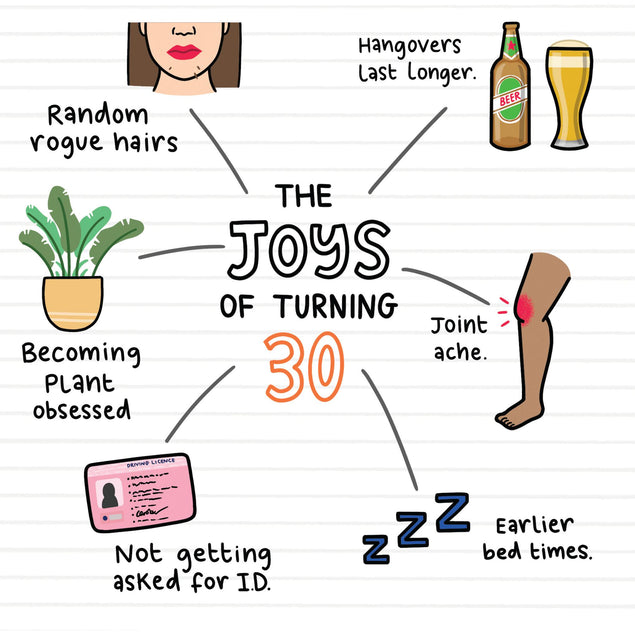 Hangovers
last longer.
BEER
Random
rogue hairs
THE
JOYS
OF TURNING
30
Joint
ache.
Becoming
Plant
obsessed
DRIVING LICENCE
Not getting
asked for I.D.
Earlier
bed times.
ZZZ